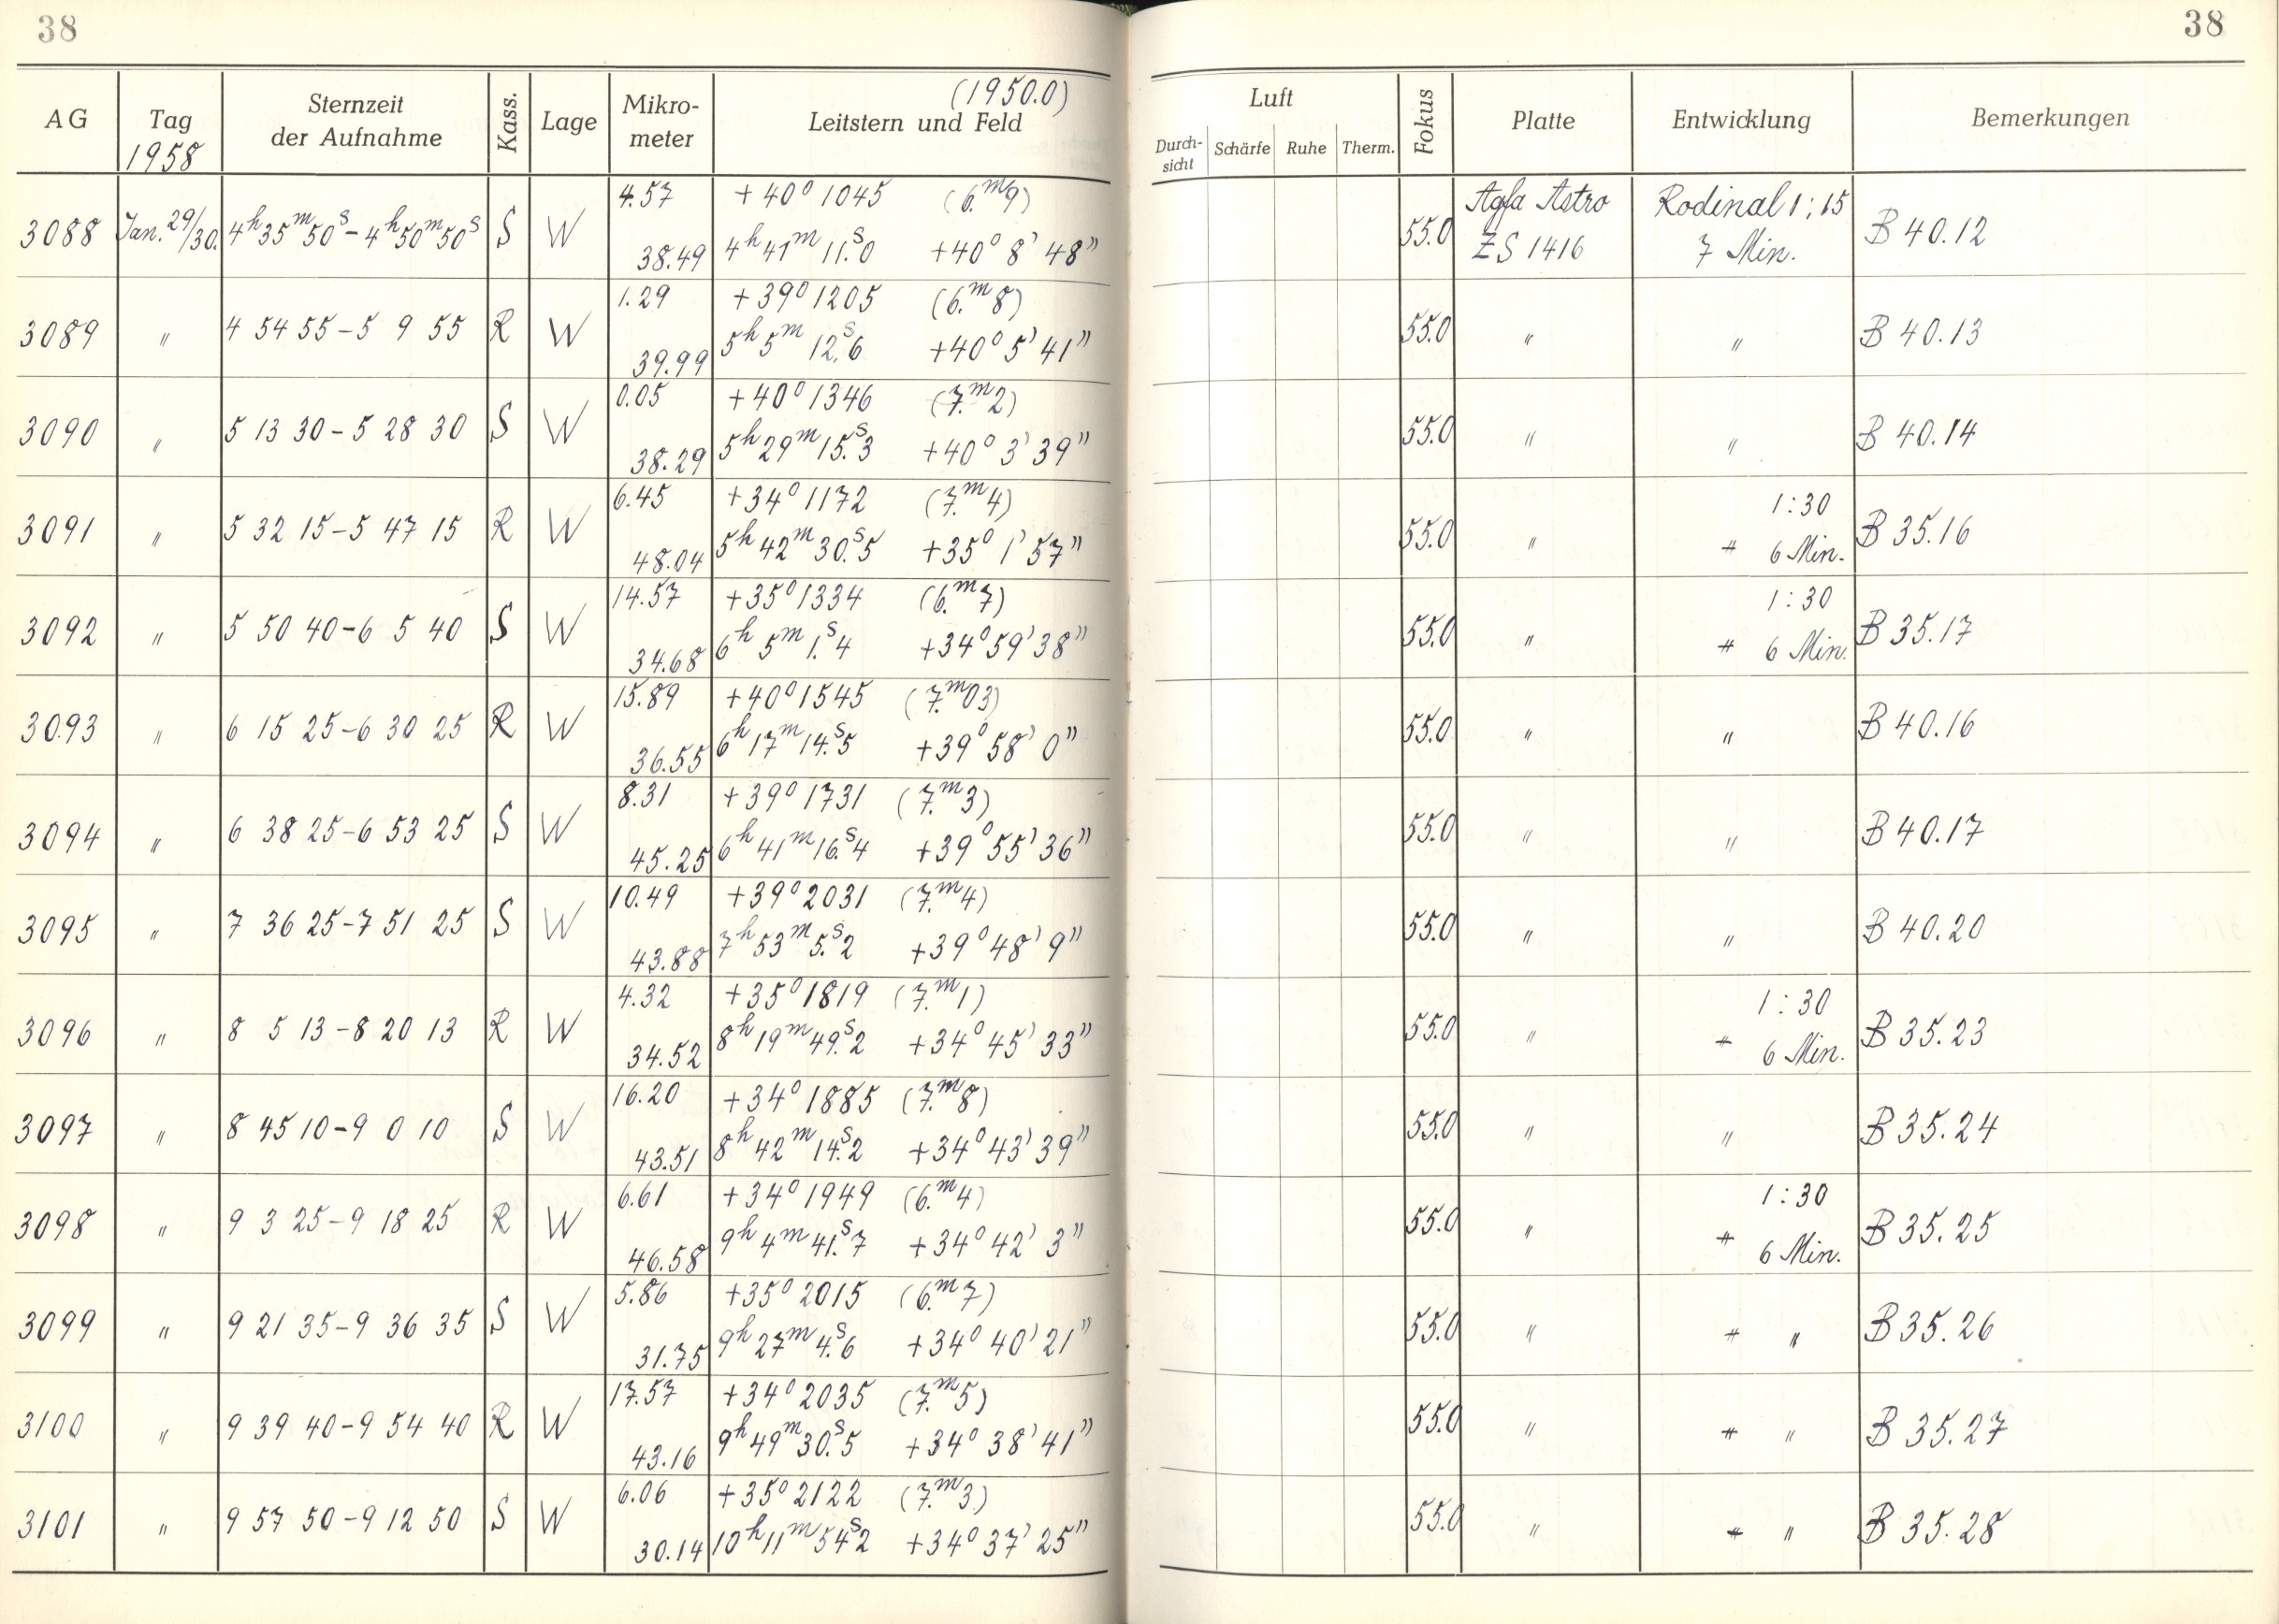 38
38
(1950.0)
AG Tag Sternzeit der Aufnahme Kass. Lage Mikro-meter Leitstern und Feld
1958
Luft
Durch-sicht Schärfe Ruhe Therm. Fokus Platte Entwicklung Bemerkungen
4.57 +40° 1045 (6.ᵐ9) Agfa Astro Rodinal 1:15
3088 Jan. 29/30. 4ʰ35ᵐ50ˢ-4ʰ50ᵐ50ˢ S W 38.49 4ʰ41ᵐ11.ˢ0 +40° 8' 48" 55.0 ZS 1416 7 Min. B 40.12
1.29 +39° 1205 (6.ᵐ8)
3089 " 4 54 55-5 9 55 R W 39.99 5ʰ5ᵐ12.ˢ6 +40° 5' 41" 55.0 " " B 40.13
0.05 +40° 1346 (7.ᵐ2)
3090 " 5 13 30-5 28 30 S W 38.29 5ʰ29ᵐ15.ˢ3 +40° 3' 39" 55.0 " " B 40.14
6.45 +34° 1172 (7.ᵐ4) 1:30
3091 " 5 32 15-5 47 15 R W 48.04 5ʰ42ᵐ30.ˢ5 +35° 1' 57" 55.0 " + 6 Min. B 35.16
14.57 +35° 1334 (6.ᵐ7) 1:30
3092 " 5 50 40-6 5 40 S W 34.68 6ʰ5ᵐ1.ˢ4 +34° 59' 38" 55.0 " + 6 Min. B 35.17
15.89 +40° 1545 (7.ᵐ03)
3093 " 6 15 25-6 30 25 R W 36.55 6ʰ17ᵐ14.ˢ5 +39° 58' 0" 55.0 " " B 40.16
8.31 +39° 1731 (7.ᵐ3)
3094 " 6 38 25-6 53 25 S W 45.25 6ʰ41ᵐ16.ˢ4 +39° 55' 36" 55.0 " " B 40.17
10.49 +39° 2031 (7.ᵐ4)
3095 " 7 36 25-7 51 25 S W 43.88 7ʰ53ᵐ5.ˢ2 +39° 48' 9" 55.0 " " B 40.20
4.32 +35° 1819 (7.ᵐ1) 1:30
3096 " 8 5 13-8 20 13 R W 34.52 8ʰ19ᵐ49.ˢ2 +34° 45' 33" 55.0 " + 6 Min. B 35.23
16.20 +34° 1885 (7.ᵐ8)
3097 " 8 45 10-9 0 10 S W 43.51 8ʰ42ᵐ14.ˢ2 +34° 43' 39" 55.0 " " B 35.24
6.61 +34° 1949 (6.ᵐ4) 1:30
3098 " 9 3 25-9 18 25 R W 46.58 9ʰ4ᵐ41.ˢ7 +34° 42' 3" 55.0 " + 6 Min. B 35.25
5.86 +35° 2015 (6.ᵐ7)
3099 " 9 21 35-9 36 35 S W 31.75 9ʰ27ᵐ4.ˢ6 +34° 40' 21" 55.0 " + " B 35.26
17.57 +34° 2035 (7.ᵐ5)
3100 " 9 39 40-9 54 40 R W 43.16 9ʰ49ᵐ30.ˢ5 +34° 38' 41" 55.0 " + " B 35.27
6.06 +35° 2122 (7.ᵐ3)
3101 " 9 57 50-9 12 50 S W 30.14 10ʰ11ᵐ54ˢ2 +34° 37' 25" 55.0 " + " B 35.28